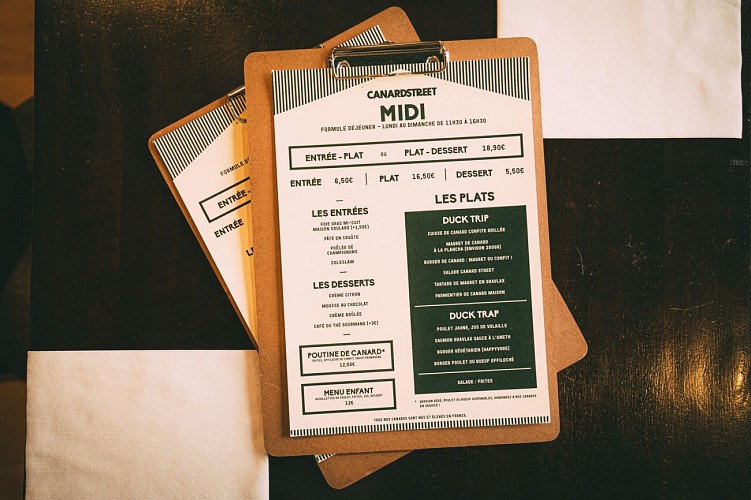 CANARDSTREET
MIDI
FORMULE DÉJEUNER - LUNDI AU DIMANCHE DE 11H30 À 16H30
ENTRÉE - PLAT OU PLAT - DESSERT 18,90€
ENTRÉE 6,50€ PLAT 16,50€ DESSERT 5,50€
LES ENTRÉES
FOIE GRAS MI-CUIT
MAISON SOULARD (+1,50€)
PÂTÉ EN CROÛTE
POÊLÉE DE
CHAMPIGNONS
COLESLAW
LES DESSERTS
CRÈME CITRON
MOUSSE AU CHOCOLAT
CRÈME BRÛLÉE
CAFÉ OU THÉ GOURMAND (+3€)
POUTINE DE CANARD*
12,50€
MENU ENFANT
12€
LES PLATS
DUCK TRIP
CUISSE DE CANARD CONFITE GRILLÉE
MAGRET DE CANARD
À LA PLANCHA (ENVIRON 200GR)
BURGER DE CANARD : MAGRET OU CONFIT !
SALADE CANARD STREET
TARTARE DE MAGRET EN GRAVLAX
PARMENTIER DE CANARD MAISON
DUCK TRAP
POULET JAUNE, JUS DE VOLAILLE
SAUMON GRAVLAX SAUCE À L'ANETH
BURGER VÉGÉTARIEN (HAPPYVORE)
BURGER POULET OU BOEUF EFFILOCHÉ
SALADE / FRITES
* VERSION VÉGÉ, POULET OU BOEUF DISPONIBLES, DEMANDEZ À NOS CANARDS
EN SERVICE !
TOUS NOS CANARDS SONT NÉS ET ÉLEVÉS EN FRANCE.
FORMULE
ENTRÉE
ENTRÉE